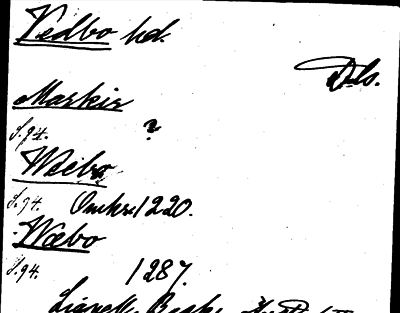 Vedbo hd.
Dls.
Markir
S. 94. ?
Wicbo
S. 94. Omkr. 1220.
Wæbo
S. 94. 1287.